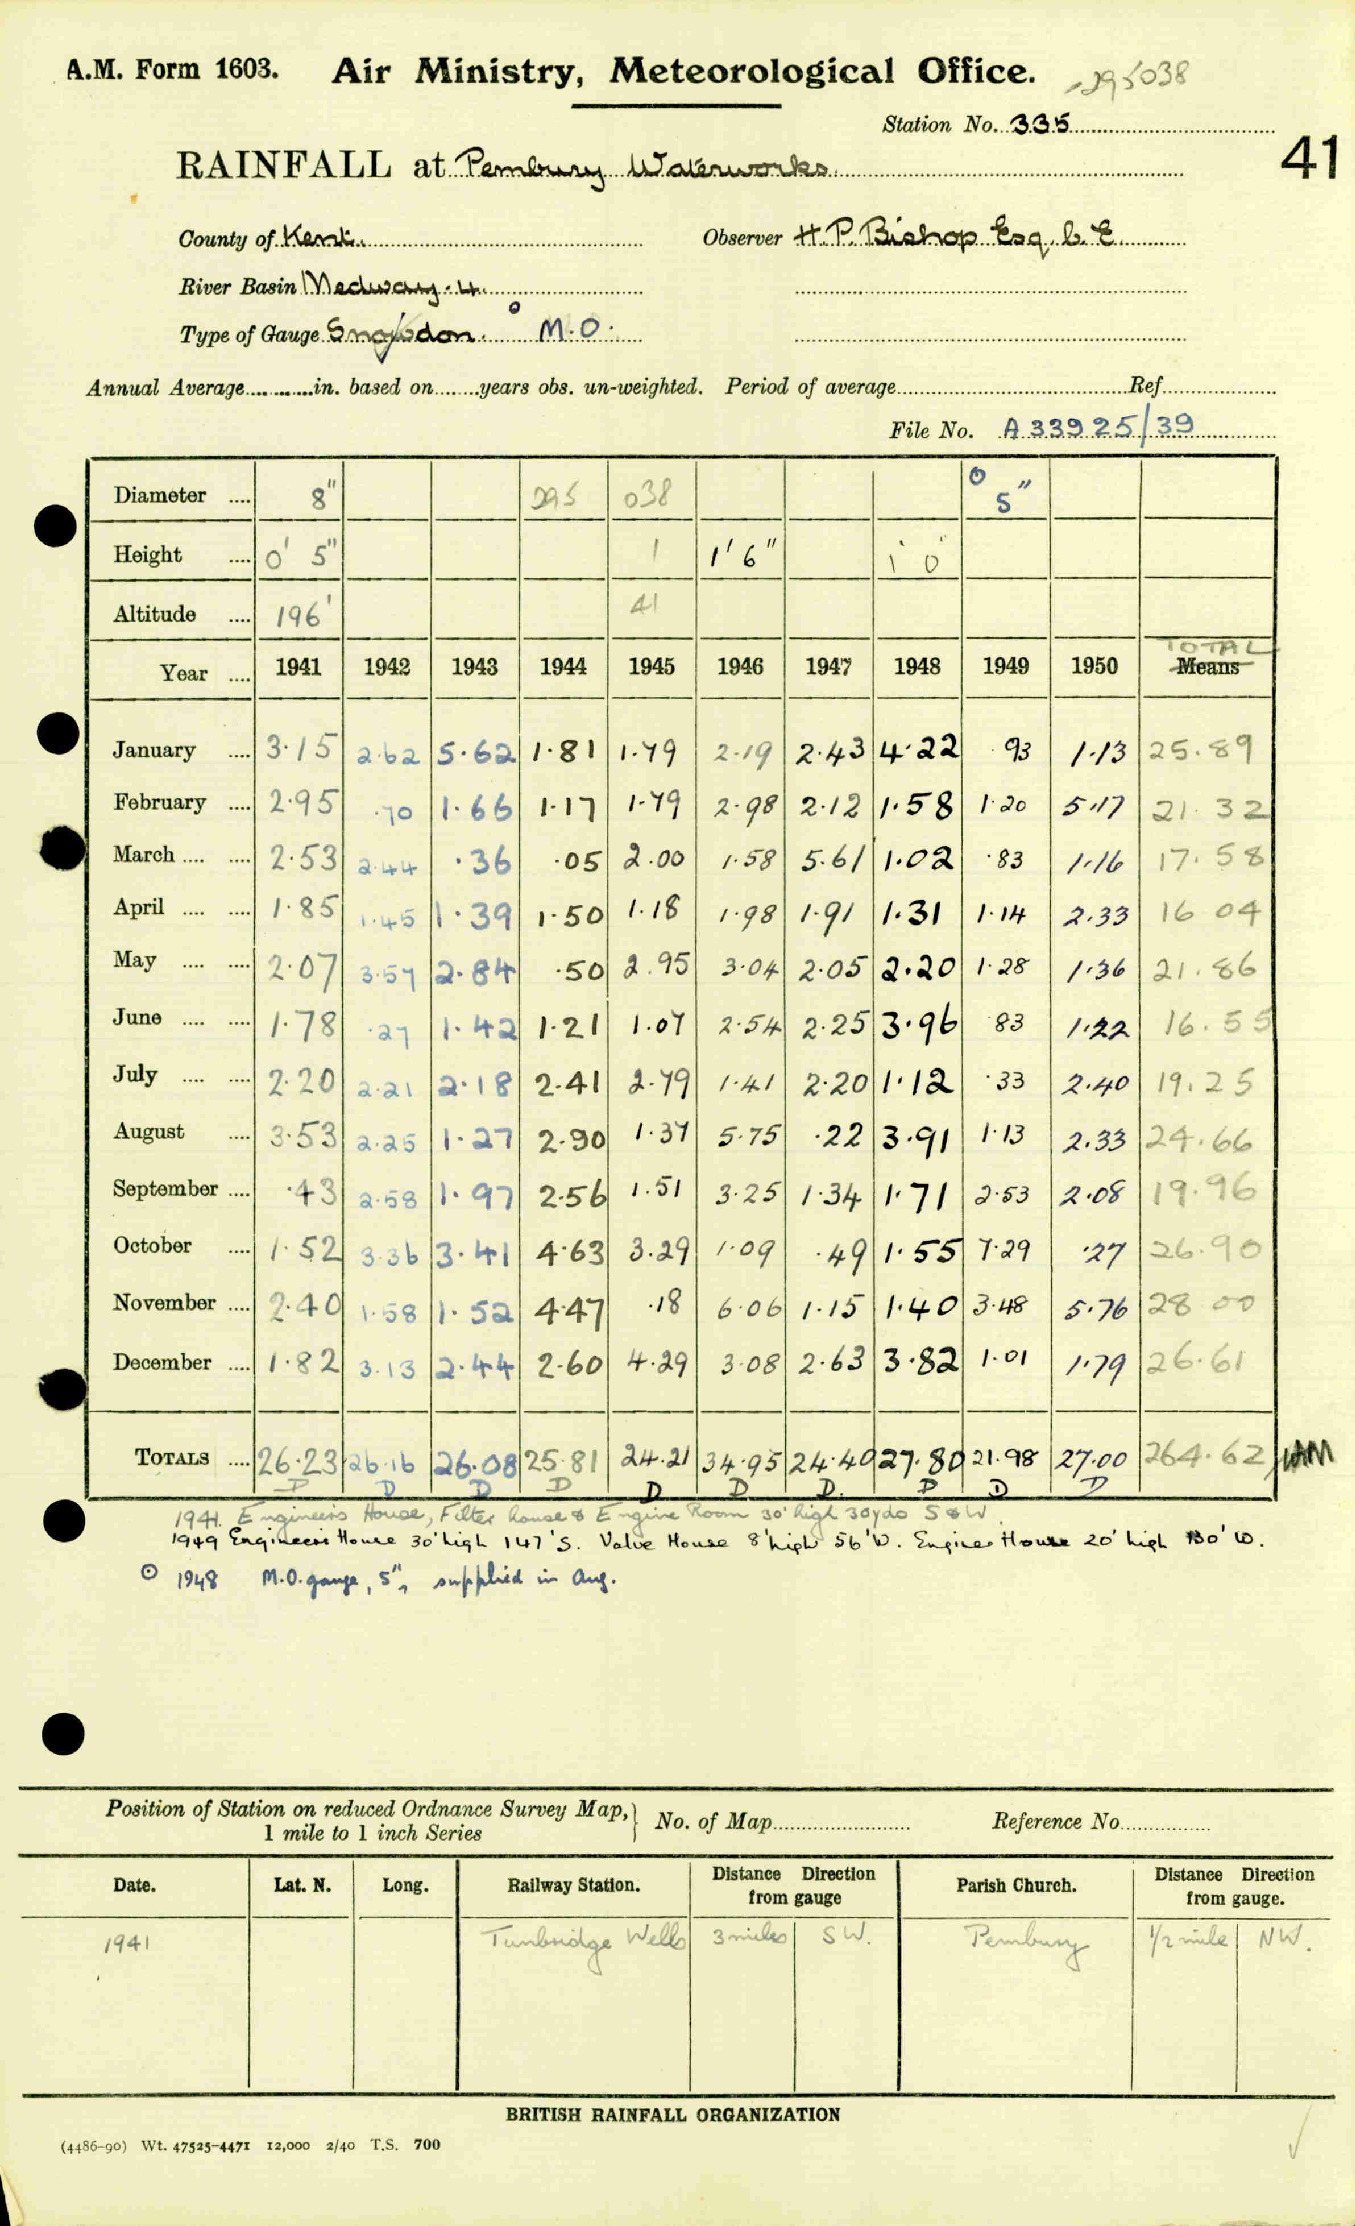 A.M. Form 1603. Air Ministry, Meteorological Office. 295038
Station No. 335
41
RAINFALL at Pembury Waterworks
County of Kent. Observer H.P. Bishop Esq. C.E.
River Basin Medway. 4.
Type of Gauge Snowdon. o M.O.
Annual Average............in. based on........years obs. un-weighted. Period of average....................Ref....................
File No. A33925/39
Diameter .... 8" 295 038 o 5"
Height .... 0' 5" 1 1' 6" 1' 0"
Altitude .... 196' 41
TOTAL
Year .... 1941 1942 1943 1944 1945 1946 1947 1948 1949 1950 Means
January .... 3.15 2.62 5.62 1.81 1.79 2.19 2.43 4.22 .93 1.13 25.89
February .... 2.95 .70 1.66 1.17 1.79 2.98 2.12 1.58 1.20 5.17 21.32
March .... .... 2.53 2.44 .36 .05 2.00 1.58 5.61 1.02 .83 1.16 17.58
April .... .... 1.85 1.45 1.39 1.50 1.18 1.98 1.91 1.31 1.14 2.33 16 04
May .... .... 2.07 3.57 2.84 .50 2.95 3.04 2.05 2.20 1.28 1.36 21.86
June .... .... 1.78 .27 1.42 1.21 1.07 2.54 2.25 3.96 83 1.22 16.55
July .... .... 2.20 2.21 2.18 2.41 2.79 1.41 2.20 1.12 .33 2.40 19.25
August .... 3.53 2.25 1.27 2.90 1.37 5.75 .22 3.91 1.13 2.33 24.66
September .... .43 2.58 1.97 2.56 1.51 3.25 1.34 1.71 2.53 2.08 19.96
October .... 1.52 3.36 3.41 4.63 3.29 1.09 .49 1.55 7.29 .27 26.90
November .... 2.40 1.58 1.52 4.47 .18 6.06 1.15 1.40 3.48 5.76 28 00
December .... 1.82 3.13 2.44 2.60 4.29 3.08 2.63 3.82 1.01 1.79 26.61
TOTALS .... 26.23 26.16 26.08 25.81 24.21 34.95 24.40 27.80 21.98 27.00 264.62
D D D D D D D. D D D
1941. Engineers House, Filter house & Engine Room 30' high 30yds S & W.
1949 Engineers House 30' high 147' S. Valve House 8' high 56' W. Engine House 20' high 130' W.
⊙ 1948 M.O. gauge, 5", supplied in Aug.
Position of Station on reduced Ordnance Survey Map,} No. of Map........................ Reference No................
1 mile to 1 inch Series
Date. Lat. N. Long. Railway Station. Distance Direction from gauge Parish Church. Distance Direction from gauge.
1941 Tunbridge Wells 3 miles SW. Pembury 1/2 mile NW.
BRITISH RAINFALL ORGANIZATION
(4486-90) Wt. 47525-4471 12,000 2/40 T.S. 700